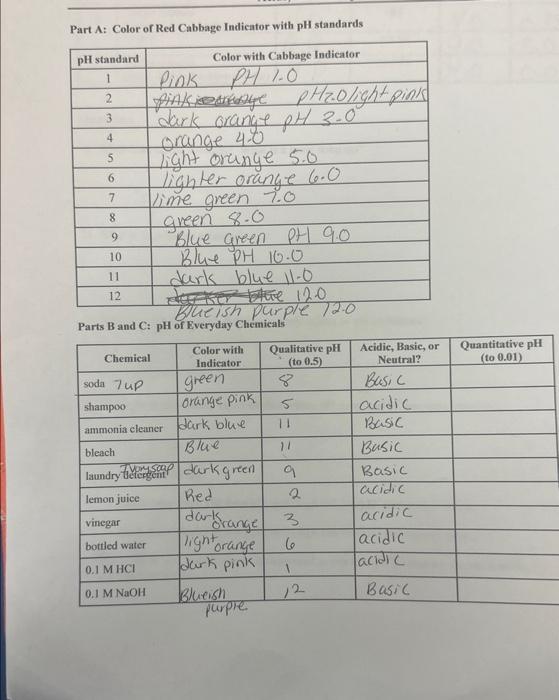 Part A: Color of Red Cabbage Indicator with pH standards
pH standard Color with Cabbage Indicator
1 Pink PH 1.0
2 pink orange PH2.0 light pink
3 dark orange pH 3.0
4 orange 4.0
5 light orange 5.0
6 lighter orange 6.0
7 lime green 7.0
8 green 8.0
9 Blue green PH 9.0
10 Blue PH 10.0
11 dark blue 11.0
12 darker blue 12.0
Blueish purple 12.0
Parts B and C: pH of Everyday Chemicals
Chemical Color with Indicator Qualitative pH (to 0.5) Acidic, Basic, or Neutral? Quantitative pH (to 0.01)
soda 7up green 8 Basic
shampoo orange pink 5 acidic
ammonia cleaner dark blue 11 Basic
bleach Blue 11 Basic
laundry detergent Ivory soap dark green 9 Basic
lemon juice Red 2 acidic
vinegar dark orange 3 acidic
bottled water light orange 6 acidic
0.1 M HCl dark pink 1 acidic
0.1 M NaOH Blueish purple 12 Basic